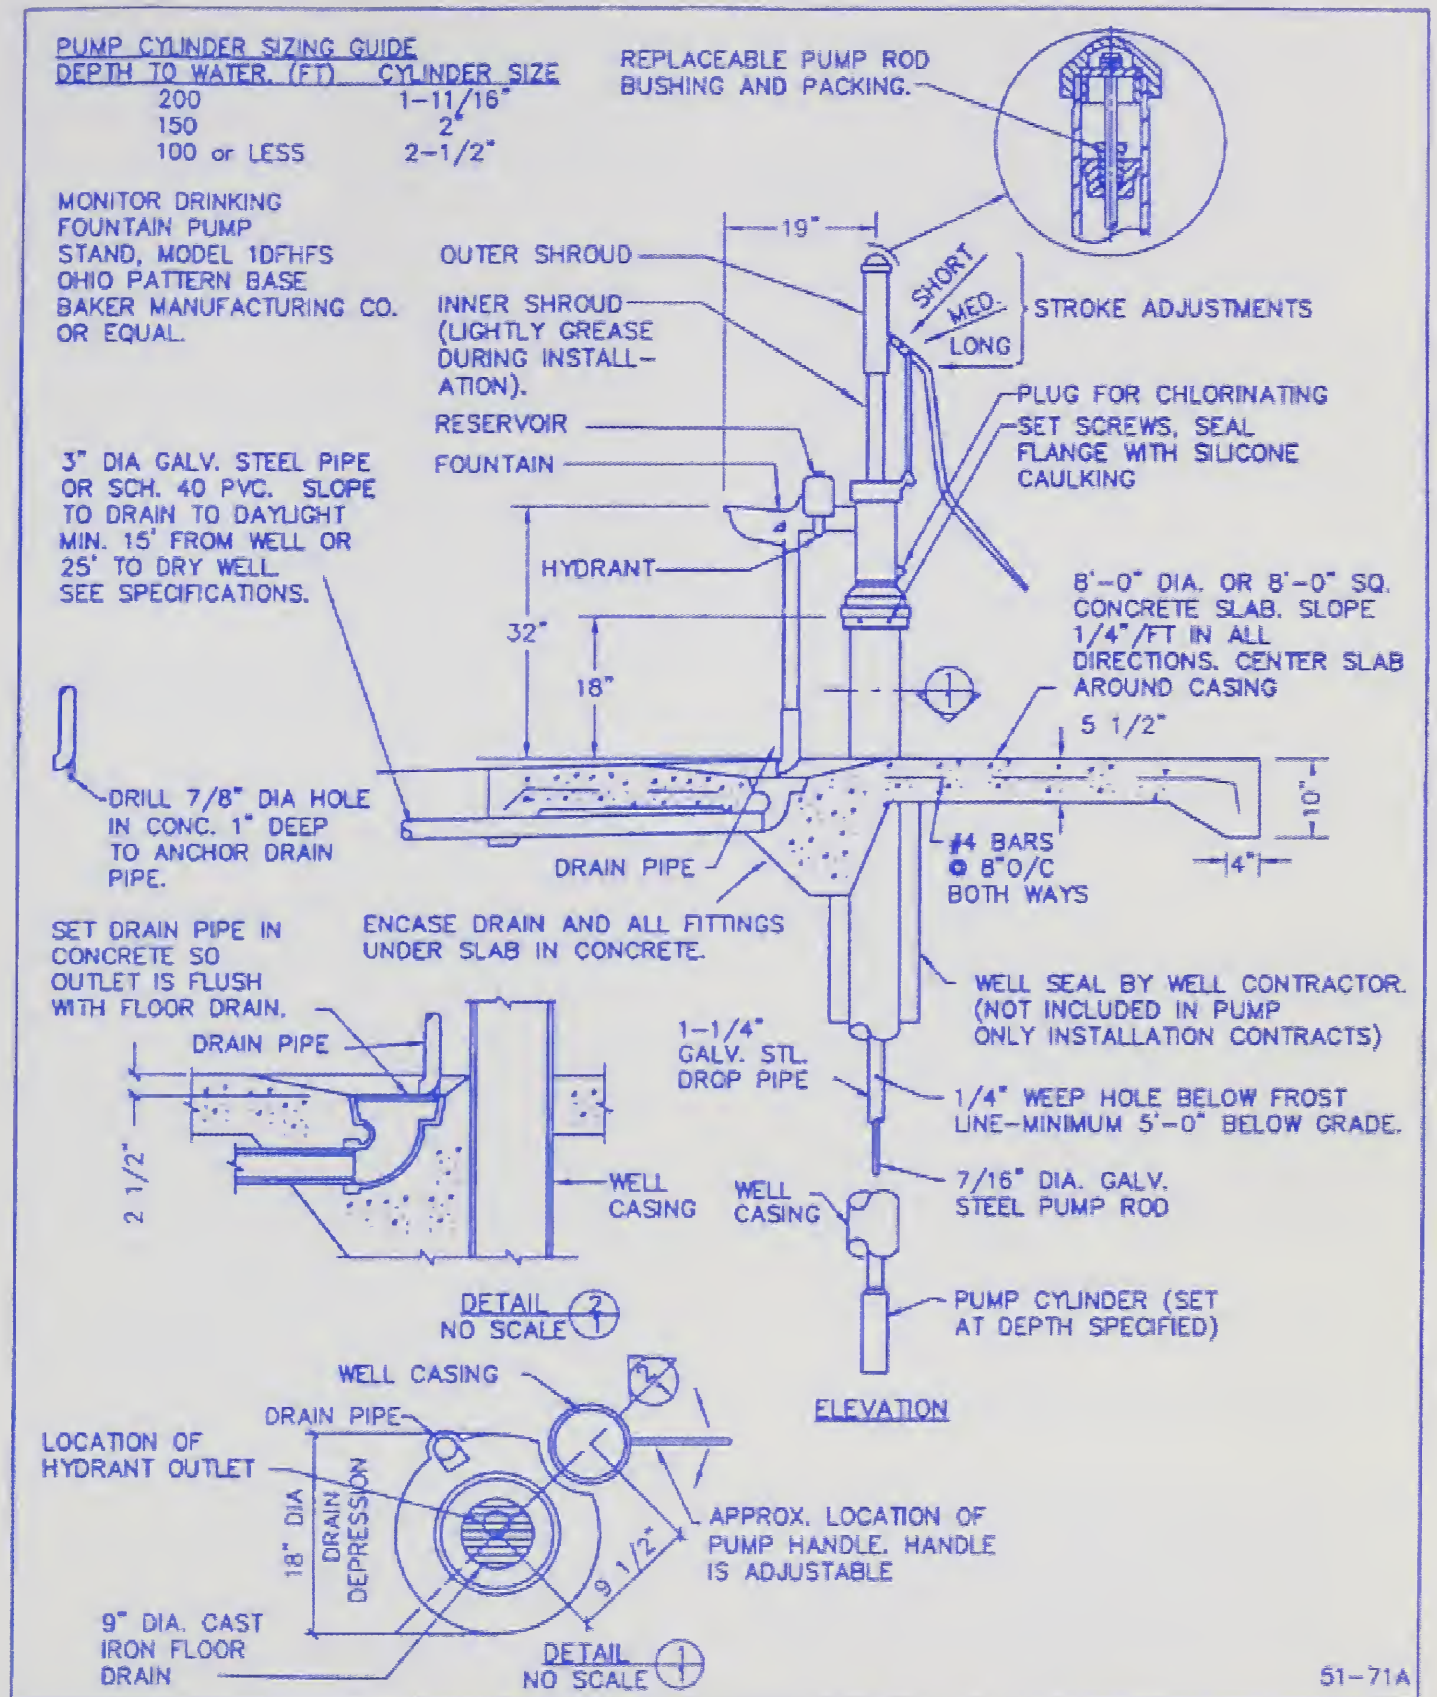 PUMP CYLINDER SIZING GUIDE
DEPTH TO WATER. (FT) CYLINDER SIZE
200 1-11/16"
150 2"
100 or LESS 2-1/2"
REPLACEABLE PUMP ROD
BUSHING AND PACKING.
MONITOR DRINKING
FOUNTAIN PUMP
STAND, MODEL 1DFHFS
OHIO PATTERN BASE
BAKER MANUFACTURING CO.
OR EQUAL.
19"
OUTER SHROUD
INNER SHROUD
(LIGHTLY GREASE
DURING INSTALL-
ATION).
SHORT
MED.
LONG
STROKE ADJUSTMENTS
RESERVOIR
FOUNTAIN
PLUG FOR CHLORINATING
SET SCREWS, SEAL
FLANGE WITH SILICONE
CAULKING
3" DIA GALV. STEEL PIPE
OR SCH. 40 PVC. SLOPE
TO DRAIN TO DAYLIGHT
MIN. 15' FROM WELL OR
25' TO DRY WELL
SEE SPECIFICATIONS.
HYDRANT
32"
18"
1
8'-0" DIA. OR 8'-0" SQ.
CONCRETE SLAB. SLOPE
1/4"/FT IN ALL
DIRECTIONS. CENTER SLAB
AROUND CASING
5 1/2"
10"
4"
DRILL 7/8" DIA HOLE
IN CONC. 1" DEEP
TO ANCHOR DRAIN
PIPE.
DRAIN PIPE
#4 BARS
@ 8"O/C
BOTH WAYS
ENCASE DRAIN AND ALL FITTINGS
UNDER SLAB IN CONCRETE.
SET DRAIN PIPE IN
CONCRETE SO
OUTLET IS FLUSH
WITH FLOOR DRAIN.
DRAIN PIPE
2 1/2"
WELL
CASING
DETAIL 2
NO SCALE 1
WELL SEAL BY WELL CONTRACTOR.
(NOT INCLUDED IN PUMP
ONLY INSTALLATION CONTRACTS)
1-1/4"
GALV. STL.
DROP PIPE
1/4" WEEP HOLE BELOW FROST
LINE-MINIMUM 5'-0" BELOW GRADE.
7/16" DIA. GALV.
STEEL PUMP ROD
WELL
CASING
PUMP CYLINDER (SET
AT DEPTH SPECIFIED)
ELEVATION
WELL CASING
2
DRAIN PIPE
LOCATION OF
HYDRANT OUTLET
18" DIA
DRAIN
DEPRESSION
9 1/2"
APPROX. LOCATION OF
PUMP HANDLE. HANDLE
IS ADJUSTABLE
9" DIA. CAST
IRON FLOOR
DRAIN
DETAIL 1
NO SCALE 1
51-71A